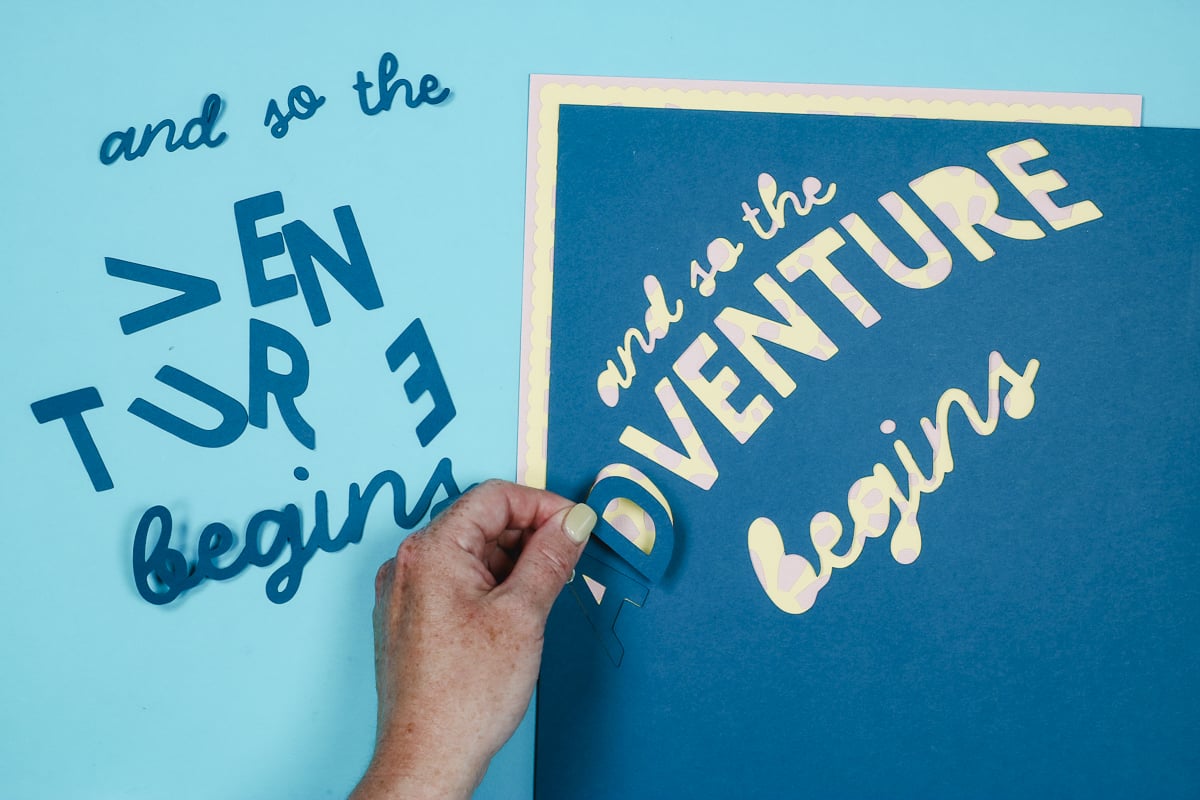 and so the
VEN
TURE
begins
and so the
ADVENTURE
begins